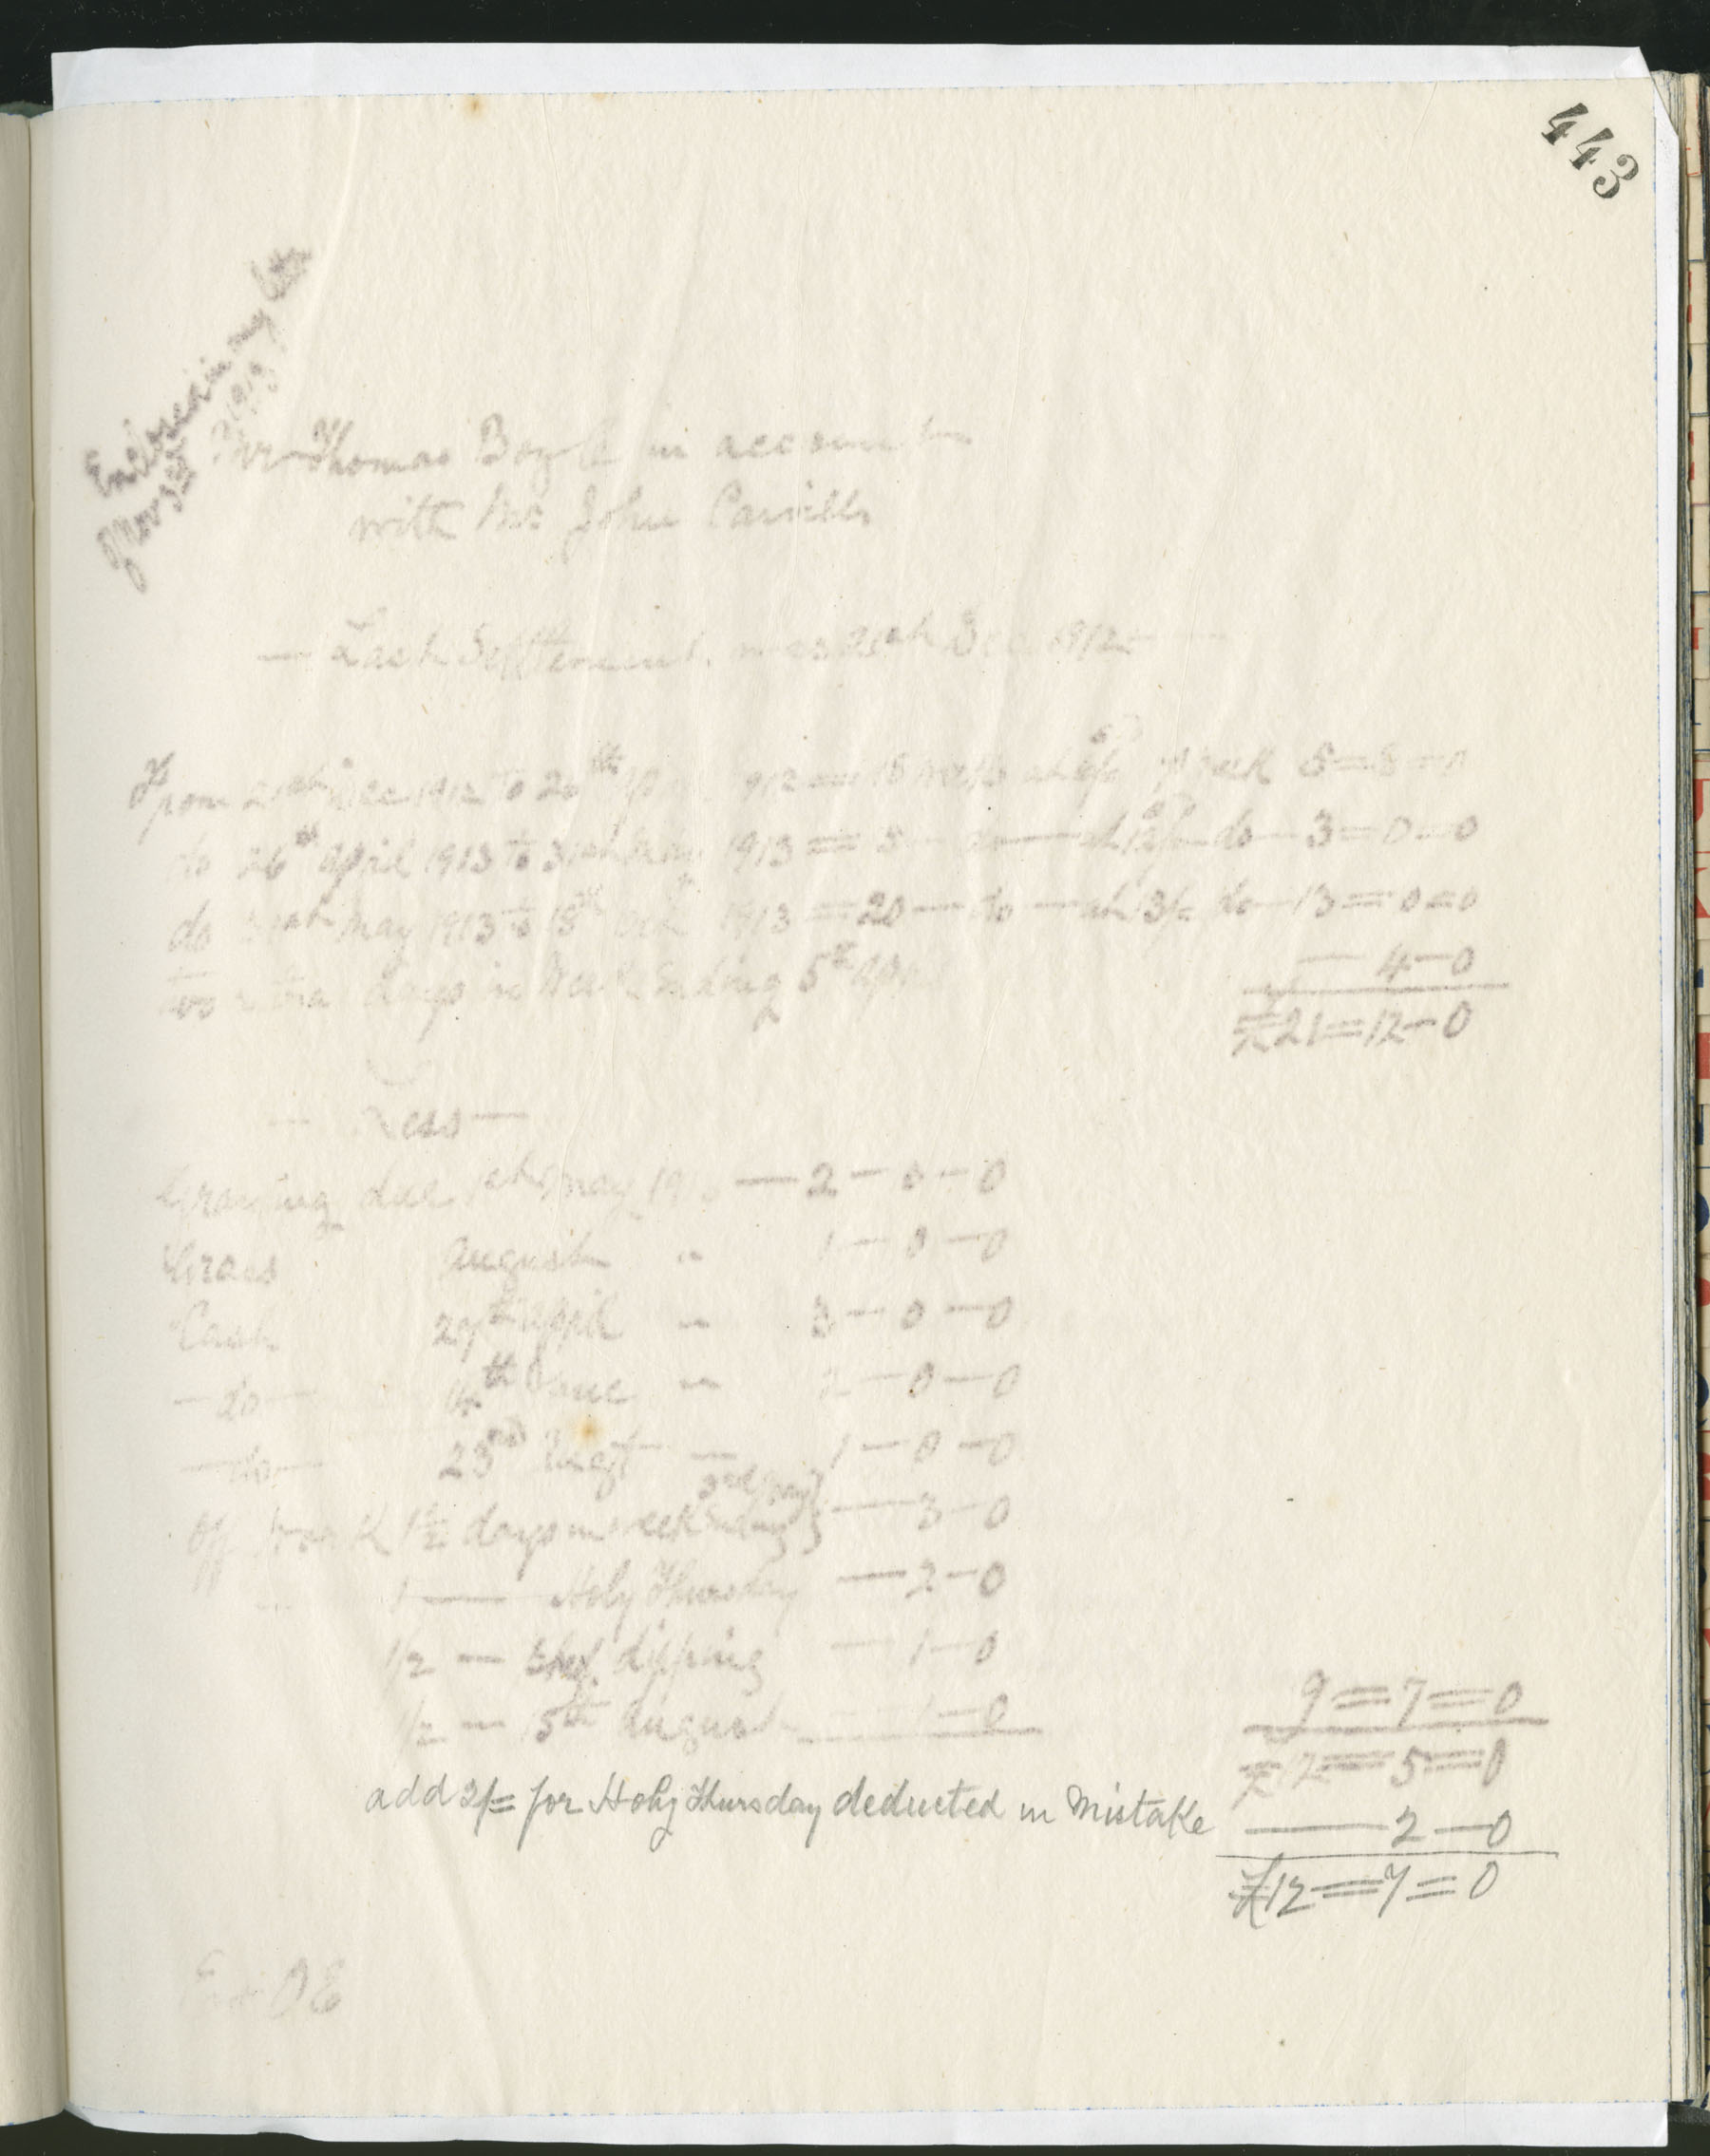 443
Enclosed in my letter
of Nov 3rd 1913
Mr Thomas Boyle in account
with Mr John
— Last Settlement was 21st Dec 1912 —
From 21st Dec 1912 to 26th April 1912 = 18 weeks at 6/- p week 5=8=0
do 26th April 1913 to 31st May 1913 = 5 — do — at 12/- do — 3=0=0
do 31st May 1913 to 18th Oct 1913 = 20 — do — at 13/= do — 13=0=0
two extra days in Week Ending 5th April — 4-0
£21=12-0
— Less —
Grazing due 1st May 1913 — 2-0-0
Grass August " 1-0-0
Cash 29th April " 3-0-0
— do — 14th June " 2-0-0
— do — 23rd Augt — 1-0-0
Off Work 1½ days in week Ending 3rd May } — 3-0
1 — Holy Thursday — 2-0
1/2 — dipping — 1-0
1/2 — 15th August — 1=0
9=7=0
£12=5=0
add 2/= for Holy Thursday deducted in Mistake — 2-0
£12=7=0
E & O E